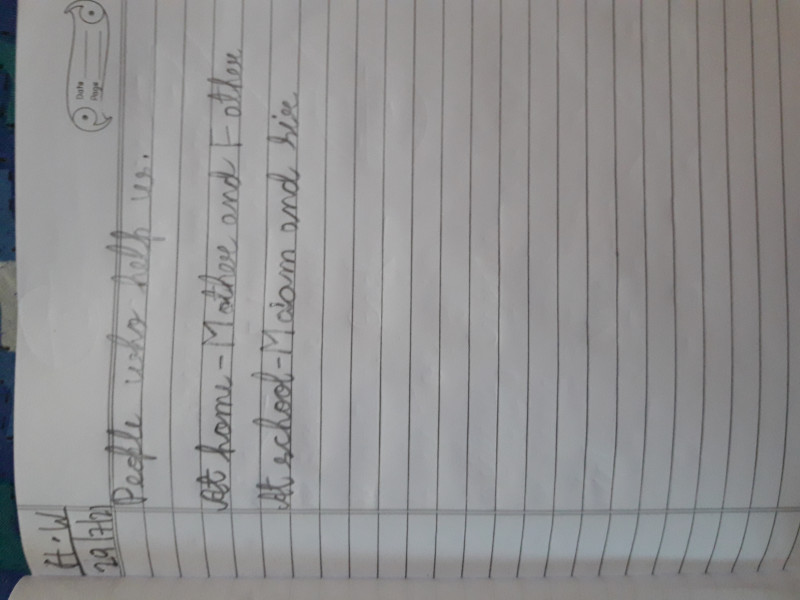 Date
Page
H.W
29/7/21
People who help us.
At home - Mother and Father
At school - Maiam and sir